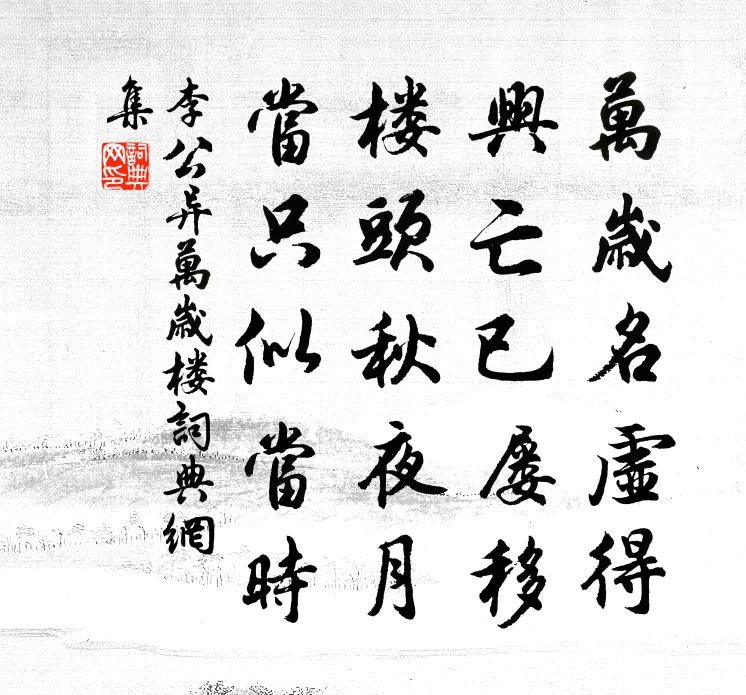 萬歲名虛得
興亡已屡移
楼頭秋夜月
當只似當時
李公异萬歲楼詞典網
集
詞典
网印